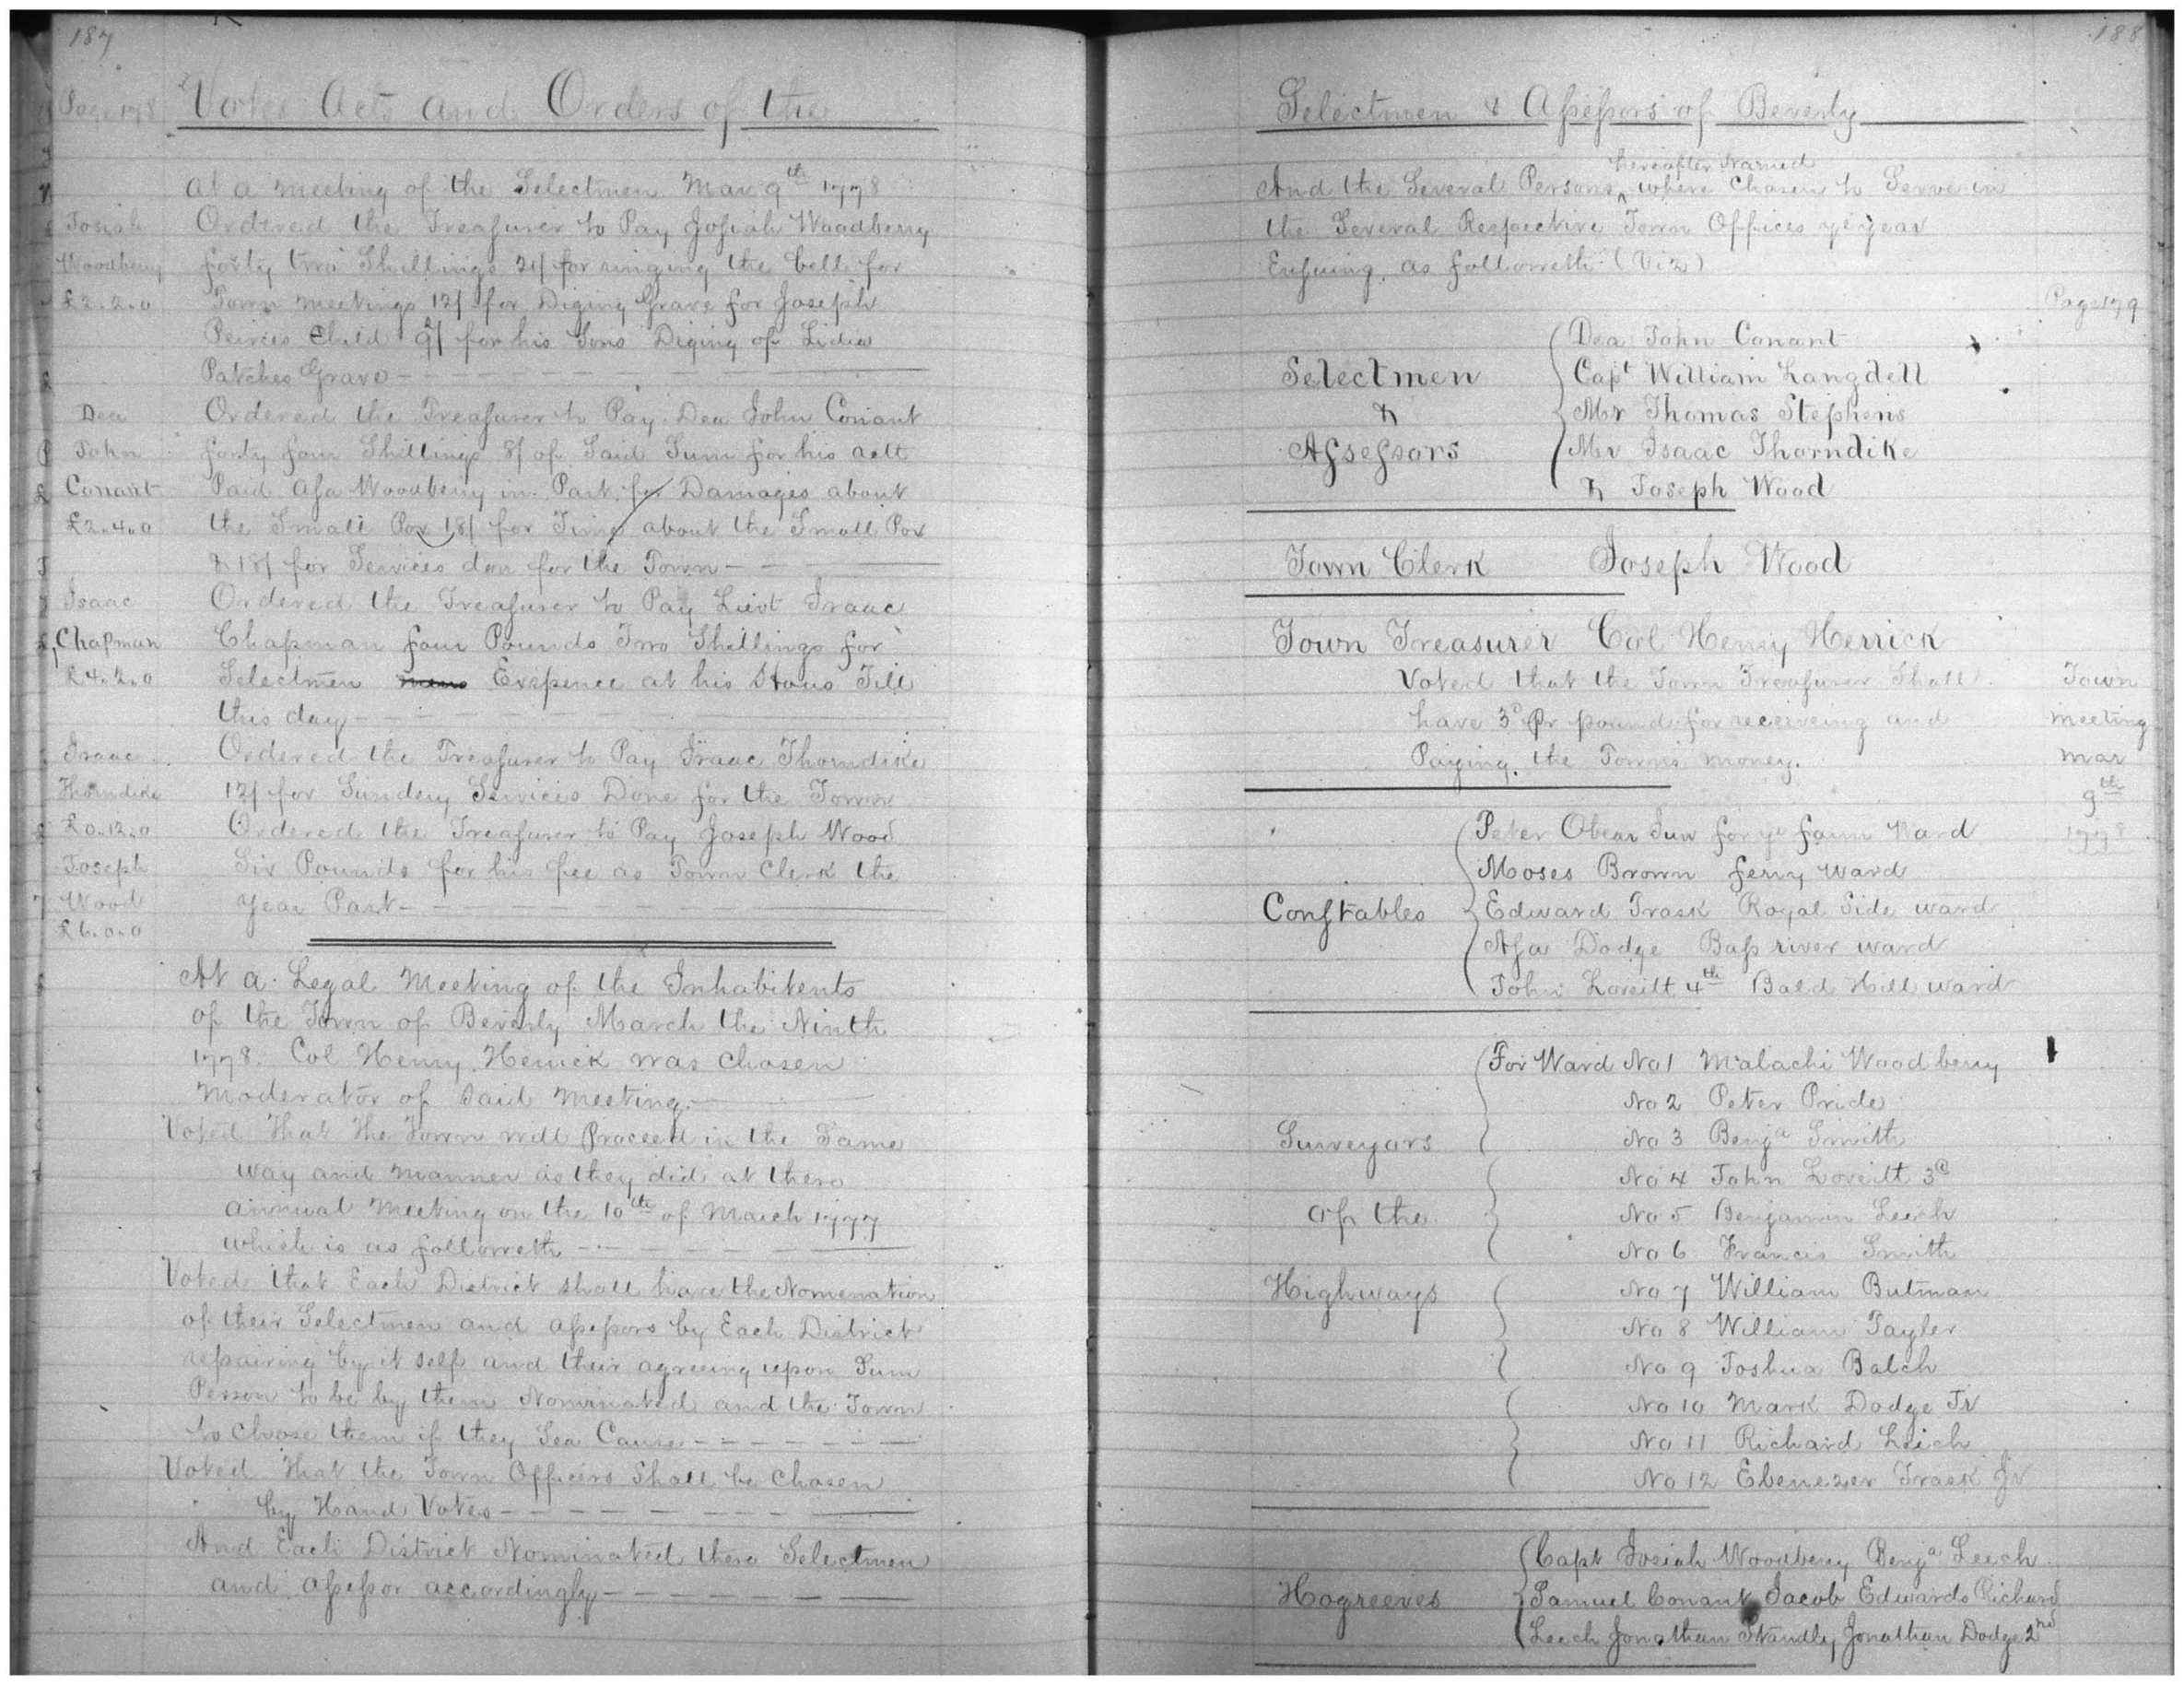 187
Page 178
Votes Acts and Orders of the
At a meeting of the Selectmen Mar 9th 1778
Josiah
Woodberry
£2.2.0
Ordered the Treasurer to Pay Josiah Woodberry
forty two Shillings 21/ for ringing the bell for
Town meetings 12/ for Diging Grave for Joseph
Peirces Child 9/ for his Sons Diging of Lidia
Patches Grave
Dea
John
Conant
£2.4.0
Ordered the Treasurer to Pay Dea John Conant
forty four Shillings 8/ of Said Sum for his actt
Paid Asa Woodberry in Part for Damages about
the Small Pox 18/ for Time about the Small Pox
& 18/ for Services don for the Town
Isaac
Chapman
£4.2.0
Ordered the Treasurer to Pay Lievt Isaac
Chapman four Pounds Two Shillings for
Selectmen Exspence at his Hous Till
this day
Isaac
Thorndike
£0.12.0
Ordered the Treasurer to Pay Isaac Thorndike
12/ for Sundery Services Done for the Town
Joseph
Wood
£6.0.0
Ordered the Treasurer to Pay Joseph Wood
Six Pounds for his fee as Town Clerk the
year Past
At a Legal Meeting of the Inhabitents
of the Town of Beverly March the Ninth
1778. Col Henry Herrick was chosen
moderator of Said meeting
Voted That the Town will Proceed in the Same
way and manner as they did at there
annual meeting on the 10th of March 1777
which is as followeth
Voted that Each District shall have the Nomenation
of their Selectmen and assessors by Each District
repairing by it self and their agreeing upon Sum
Person to be by them Nominated and the Town
to choose them if they Sea Cause
Voted That the Town Officers Shall be chosen
by Hand Votes
And Each District Nominated there Selectmen
and assessor accordingly
188
Selectmen & Assessors of Beverly
hereafter Named
And the Several Persons ^ where Chosen to Serve in
the Several Respective Town Offices ye year
Ensuing, as followeth (Viz)
Page 179
Selectmen
&
Assessors
Dea John Conant
Capt William Langdell
Mr Thomas Stephens
Mr Isaac Thorndike
& Joseph Wood
Town Clerk Joseph Wood
Town Treasurer Col Henry Herrick
Voted that the Town Treasurer Shall
have 3d Pr pound for receiveing and
Paying the Towns money.
Town
meeting
mar
9th
1778
Constables
Peter Obear Jun for ye farm Ward
Moses Brown ferry ward
Edward Trask Royal Side ward
Asa Dodge Bass river ward
John Loveitt 4th Bald Hill ward
Surveyors
of the
Highways
For Ward No 1 Malachi Woodberry
No 2 Peter Pride
No 3 Benja Smith
No 4 John Loveitt 3d
No 5 Benjamin Leech
No 6 Francis Smith
No 7 William Butman
No 8 William Tayler
No 9 Joshua Balch
No 10 Mark Dodge Jr
No 11 Richard Leech
No 12 Ebenezer Trask Jr
Hogreeves
Capt Josiah Woodberry Benja Leech
Samuel Conant Jacob Edwards Richard
Leech Jonathan Standly Jonathan Dodge 2nd